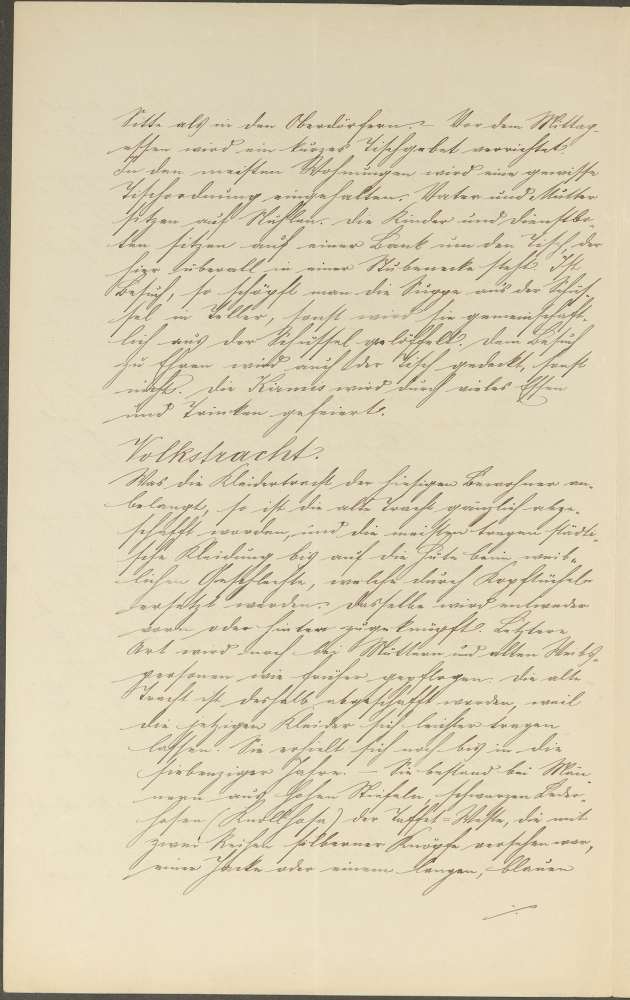 Sitte als in den Oberdörfern. – Vor dem Mittag-
essen wird ein kurzes Tischgebet verrichtet.
In den meisten Wohnungen wird eine gewisse
Tischordnung eingehalten. Vater und Mutter
sitzen auf Stühlen. Die Kinder und Dienstbo-
ten sitzen auf einer Bank um den Tisch, der
hier überall in einer Stubenecke steht. Ist
Besuch, so schöpft man die Suppe aus der Schüs-
sel in Teller, sonst wird sie gemeinschaft-
lich aus der Schüssel gelöffelt. Dem Besuch
zu Ehren wird auch der Tisch gedeckt, sonst
nicht. Die Kirmes wird durch vieles Essen
und Trinken gefeiert.
Volkstracht.
Was die Kleidertracht der hiesigen Bewohner an-
belangt, so ist die alte Tracht gänzlich abge-
schafft worden, und die meisten tragen städti-
sche Kleidung bis auf die Hüte beim weib-
lichen Geschlechte, welche durch Kopftücheln
ersetzt werden. Dasselbe wird entweder
vorn oder hinten zugeknüpft. Letztere
Art wird noch bei Müttern und alten Weibs-
personen wie früher gepflogen. Die alte
Tracht ist deshalb abgeschafft worden, weil
die jetzigen Kleider sich leichter tragen
lassen. Sie erhielt sich noch bis in die
siebenziger Jahre. – Sie bestand bei Män-
nern aus hohen Stiefeln, schwarzen Leder-
hosen (Knollhose) der Taffet-Weste, die mit
zwei Reihen silberner Knöpfe versehen war,
einer Jacke oder einem langen, blauen